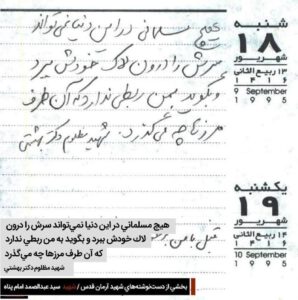 هیچ مسلمانی در این دنیا نمی‌تواند
سرش را درون لاک خودش ببرد
و بگوید بمن ربطی ندارد که آن طرف
مرزها چه می‌گذرد. شهید مظلوم دکتر بهشتی
شنبه
۱۸
شهریور
۱۳ ربیع الثانی
۱۴۱۶
9 September
1995
یکشنبه
۱۹
شهریور
۱۴ ربیع الثانی
۱۴۱۶
10 September
1995
هیچ مسلماني در این دنیا نمي‌تواند سرش را درون
لاك خودش ببرد و بگوید به من ربطي ندارد
که آن طرف مرزها چه مي‌گذرد
شهید مظلوم دکتر بهشتي
بخشي از دست‌نوشته‌هاي شهید آرمان قدس / شهید سید عبدالصمد امام پناه